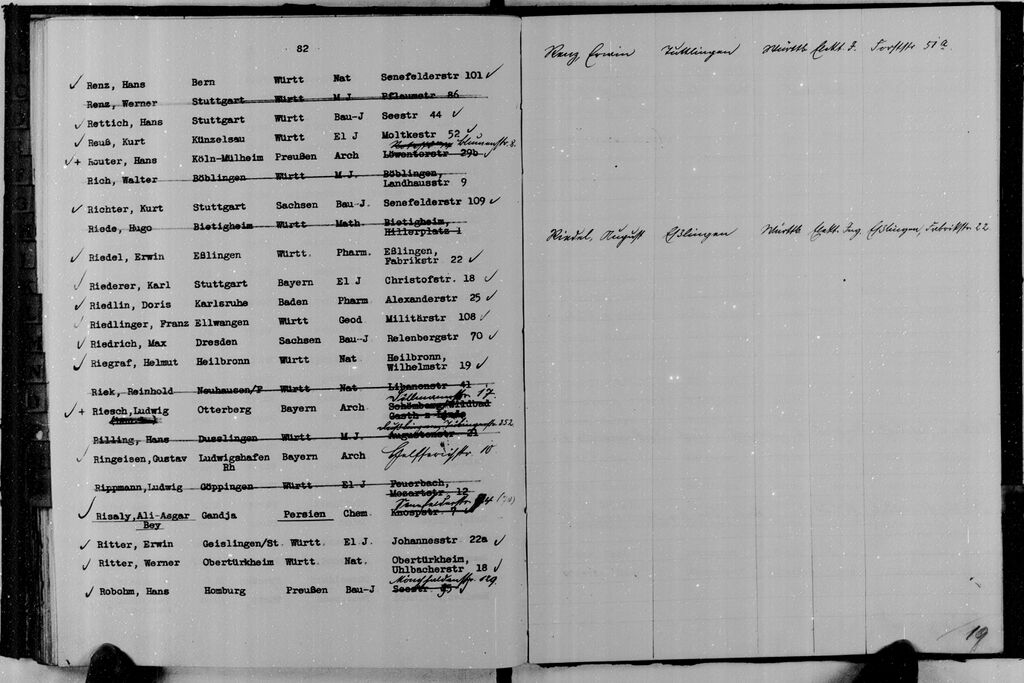 82
Renz, Hans Bern Württ Nat Senefelderstr 101
Renz, Werner Stuttgart Württ M J Pflaumstr 86
Rettich, Hans Stuttgart Württ Bau-J Seestr 44
Reuß, Kurt Künzelsau Württ El J Moltkestr 52
Blumenstr. 8.
+ Router, Hans Köln-Mülheim Preußen Arch Löwentorstr 29b
Rich, Walter Böblingen Württ M.J. Böblingen,
Landhausstr 9
Richter, Kurt Stuttgart Sachsen Bau-J. Senefelderstr 109
Riede, Hugo Bietigheim Württ Math. Bietigheim,
Hillerplatz 1
Riedel, Erwin Eßlingen Württ. Pharm. Eßlingen,
Fabrikstr 22
Riederer, Karl Stuttgart Bayern El J Christofstr. 18
Riedlin, Doris Karlsruhe Baden Pharm Alexanderstr 25
Riedlinger, Franz Ellwangen Württ Geod Militärstr 108
Riedrich, Max Dresden Sachsen Bau-J Relenbergstr 70
Riegraf, Helmut Heilbronn Württ Nat Heilbronn,
Wilhelmstr 19
Riek, Reinhold Neuhausen/F Württ Nat Libanonstr 41
Tillmannstr. 17.
+ Riesch,Ludwig Otterberg Bayern Arch Schömberg/Wildbad
Gasth z Linde
Rilling, Hans Dusslingen Württ M.J. Augustenstr 21
Ringeisen,Gustav Ludwigshafen Bayern Arch Helfferichstr. 10
Rh
Rippmann,Ludwig Göppingen Württ El J Feuerbach,
Mozartstr 12
Senefelderstr 74
Risaly,Ali-Asgar Gandja Persien Chem. Knospstr 7
Bey
Ritter, Erwin Geislingen/St Württ. El J. Johannesstr 22a
Ritter, Werner Obertürkheim Württ. Nat. Obertürkheim,
Uhlbacherstr 18
Mönchhaldenstr. 129
Robohm, Hans Homburg Preußen Bau-J Seestr 95
Renz Erwin Tuttlingen Württb Elekt. J. Forststr 51a
Riedel, August Eßlingen Württb Elekt. Ing. Eßlingen, Fabrikstr. 22
19